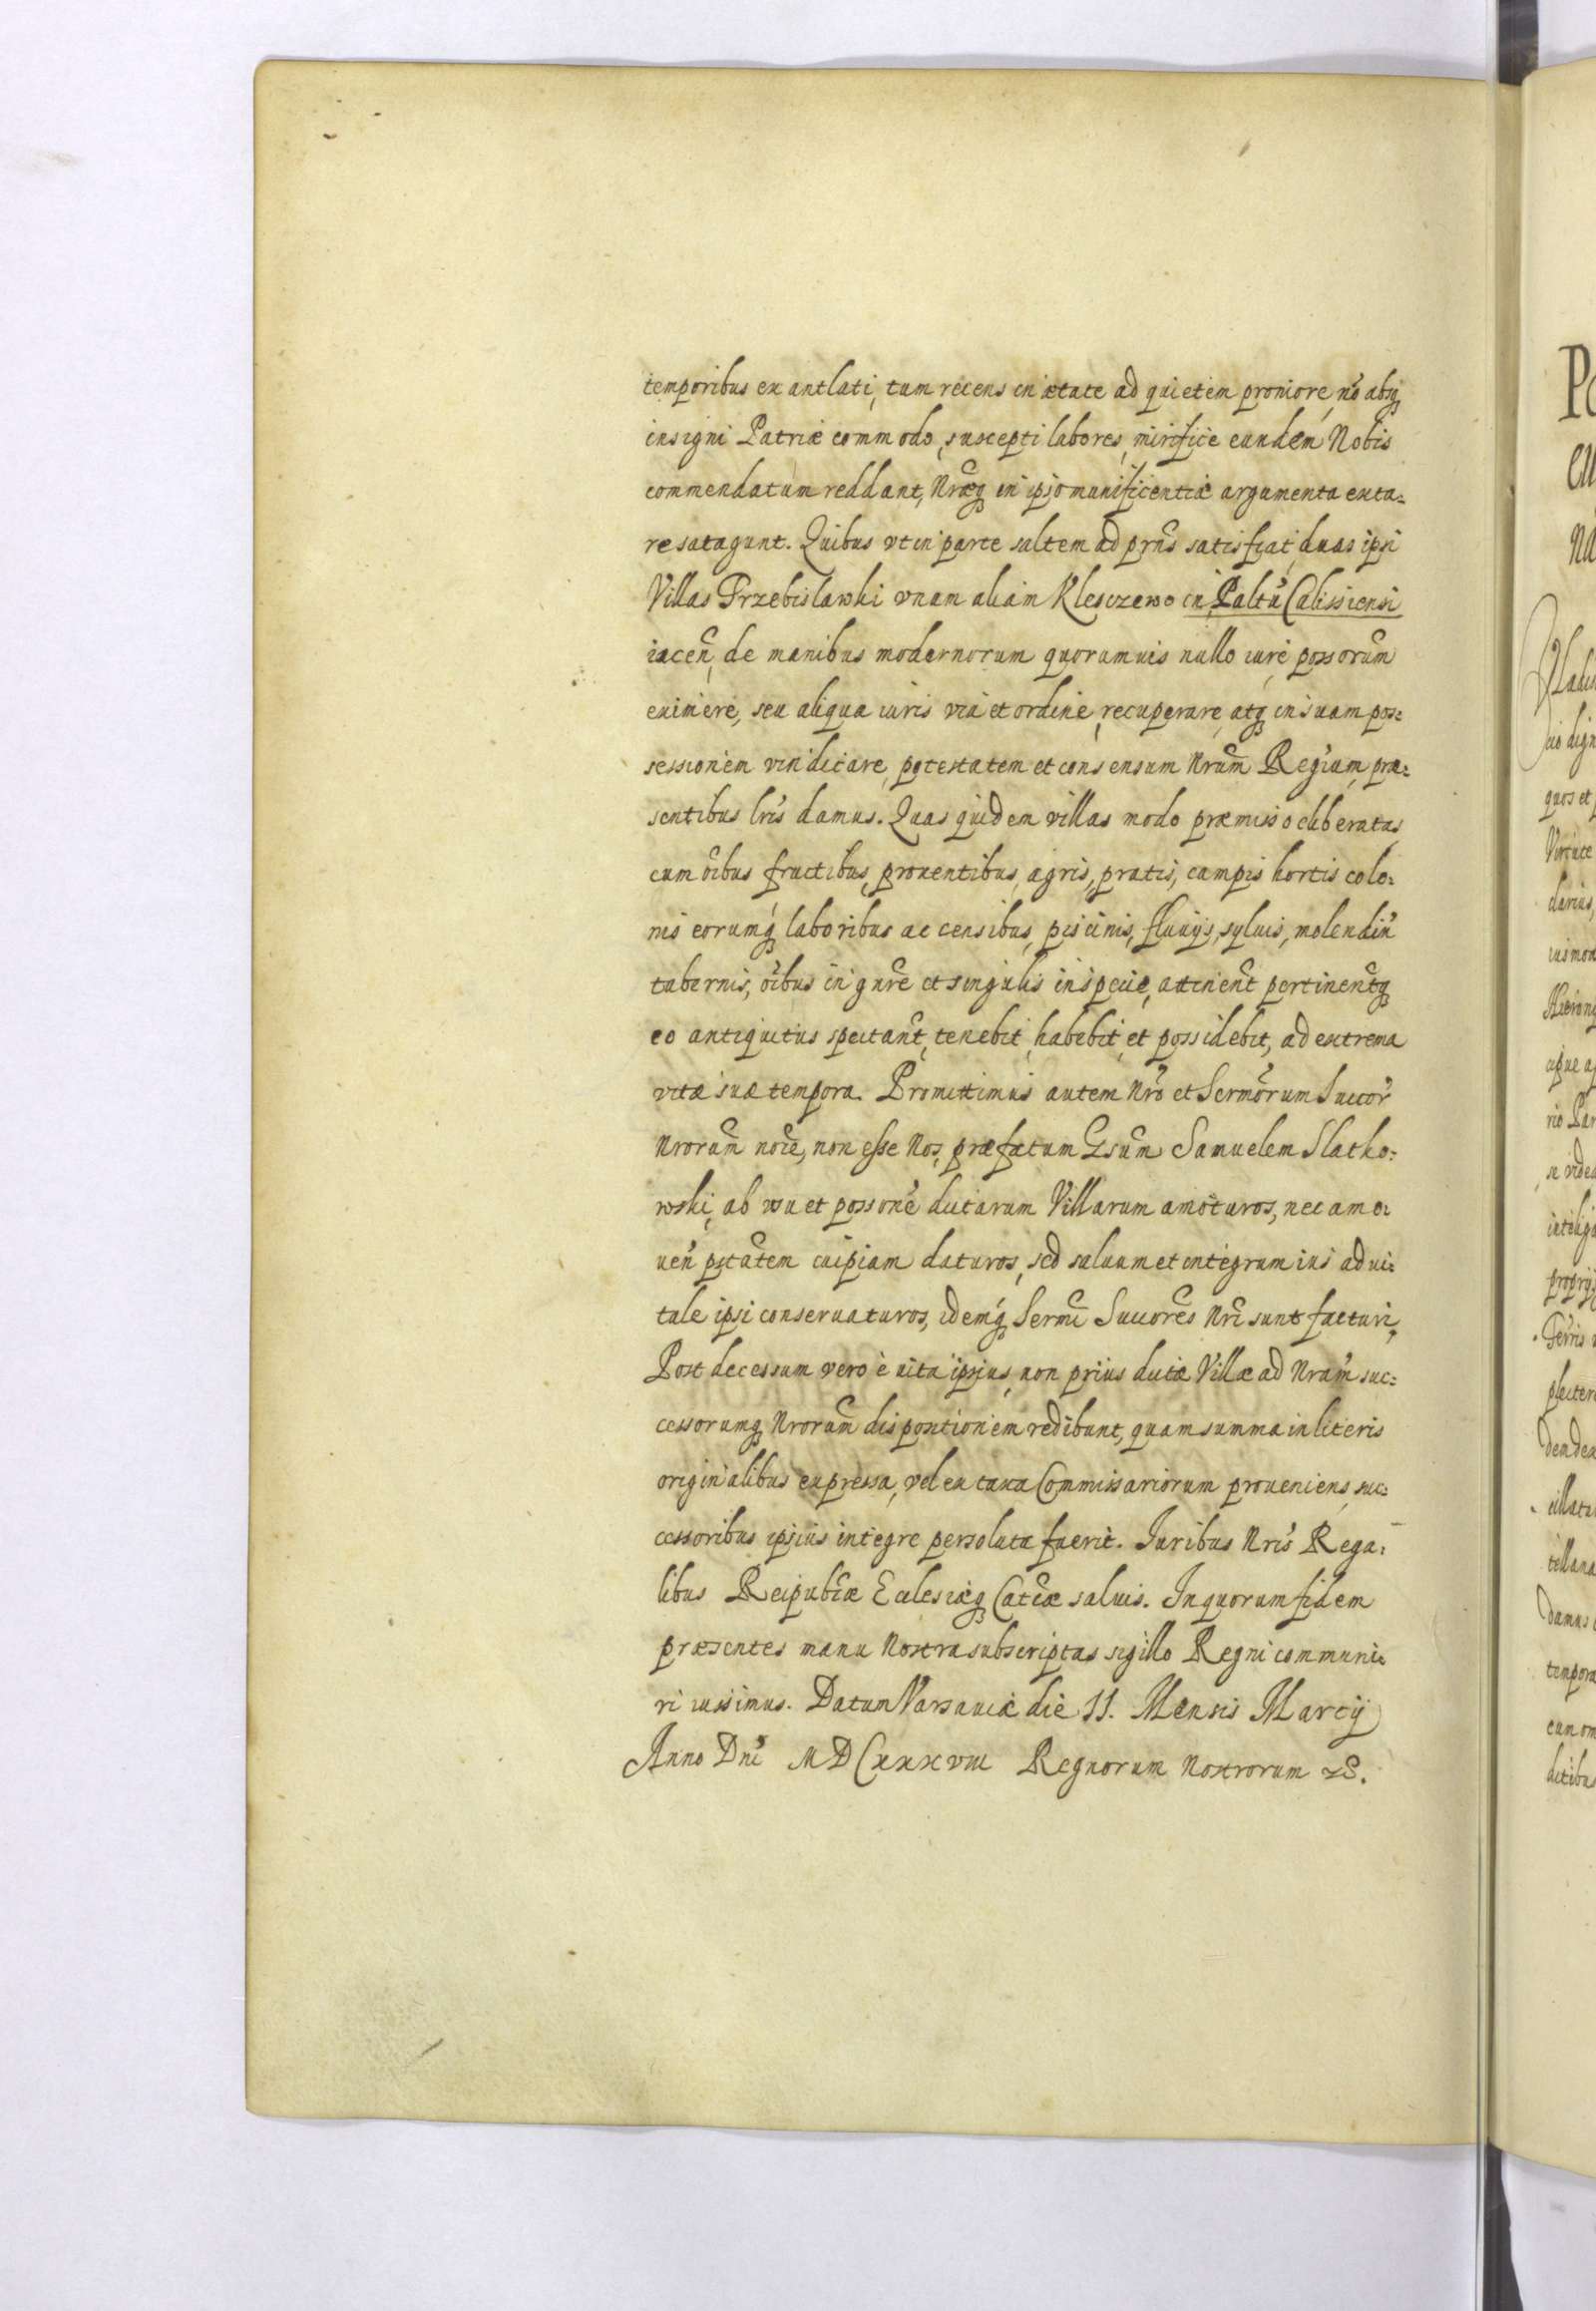 temporibus exantlati, tum recens in ætate ad quietem proniore, nõ absq
insigni Patriæ commodo, suscepti labores, mirifice eundem Nobis
commendatum reddant, Nræq in ipso munificentiæ argumenta exta=
re satagunt. Quibus vt in parte saltem ad prñs satisfiat, duas ipsi
Villas Przebislawki vnam aliam Klesczewo in Paltũ Calissiensi
iaceñ, de manibus modernorum quorumuis nullo iure possorum̃
eximere, seu aliqua iuris via et ordine, recuperare, atq in suam pos=
sessionem vindicare, potestatem et consensum Nrum̃ Regium, præ=
sentibus lris̃ damus. Quas quidem villas modo præmisso eliberatas
cum oĩbus fructibus, prouentibus, agris, pratis, campis hortis colo=
nis eorumq laboribus ac censibus, piscinis, fluuijs, syluis, molendiñ
tabernis, oĩbus in gñre et singulis in specie, attineñt pertineñtq
eo antiquitus spectañt, tenebit, habebit, et possidebit, ad extrema
vitæ suæ tempora. Promittimus autem Nrõ et Sermõrum Succor̃
Nrorum̃ noĩe, non esse Nos, præfatum Gsum̃ Samuelem Slatko=
wski, ab vsu et possonẽ dictarum Villarum amoturos, nec amo=
ueñ ptãtem cuipiam daturos, sed saluum et integrum ius adui=
tale ipsi conseruaturos, idemq Sermĩ Succores̃ Nrĩ sunt facturi,
Post decessum vero è vita ipsius, non prius dictæ Villæ ad Nram̃ suc=
cessorumq Nrorum̃ dispositionem redibunt, quam summa in literis
originalibus expressa, vel ex taxa Commissariorum proueniens, suc=
cessoribus ipsius integre persoluta fuerit. Iuribus Nris̃ Rega=
libus Reipubcæ̃ Ecclesiæq Catcæ̃ saluis. In quorum fidem
præsentes manu Nostra subscriptas sigillo Regni communi=
ri iussimus. Datum Varsauiæ die 11. Mensis Martij
Anno Dnĩ MDCxxxviii Regnorum Nostrorum &c.